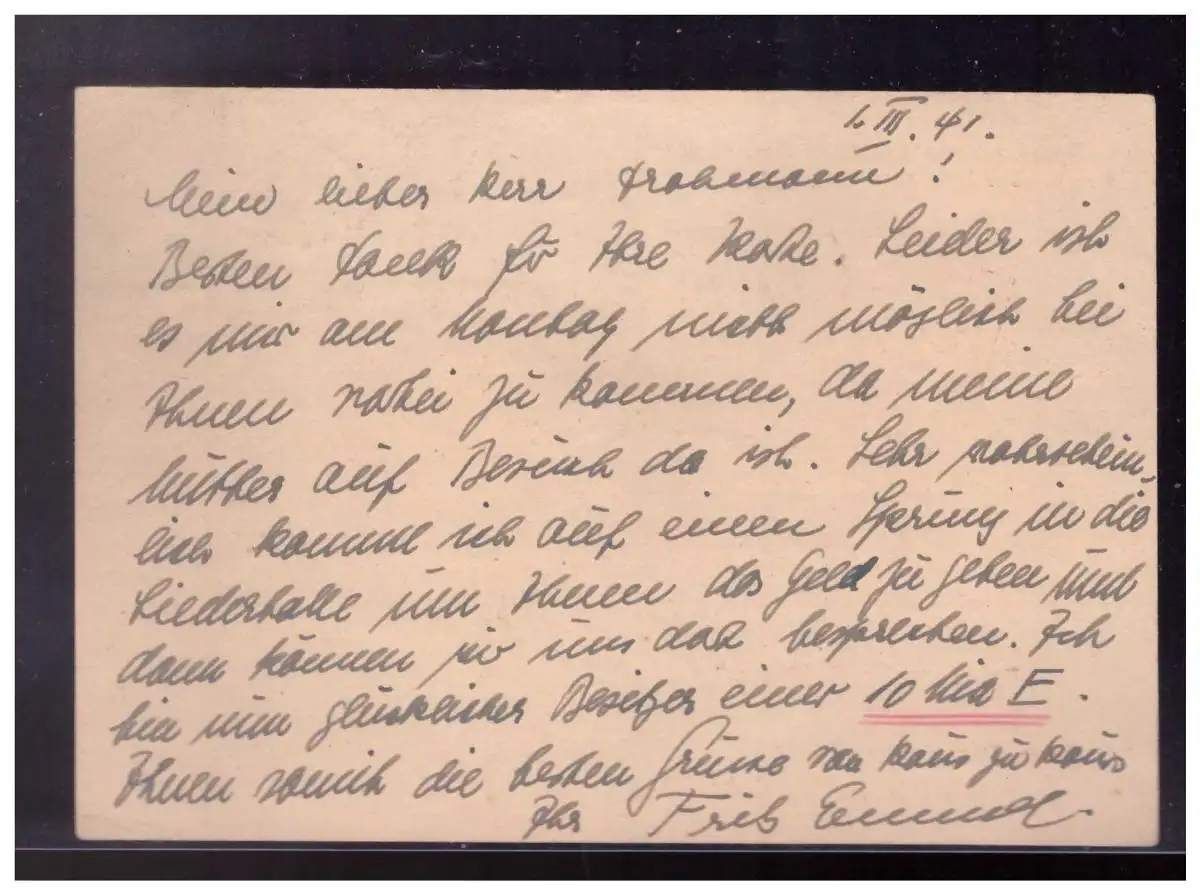 1. III. 41.
Mein lieber Herr Trabmann!
Besten Dank für Ihre Karte. Leider ist
es mir am Montag nicht möglich bei
Ihnen vorbei zu kommen, da meine
Mutter auf Besuch da ist. Sehr wahrschein-
lich komme ich auf einen Sprung in die
Liederhalle um Ihnen das Geld zu geben und
dann können wir uns dort besprechen. Ich
bin nun glücklicher Besitzer einer 10 E.
Ihnen somit die besten Grüsse von Haus zu Haus
Ihr Fritz